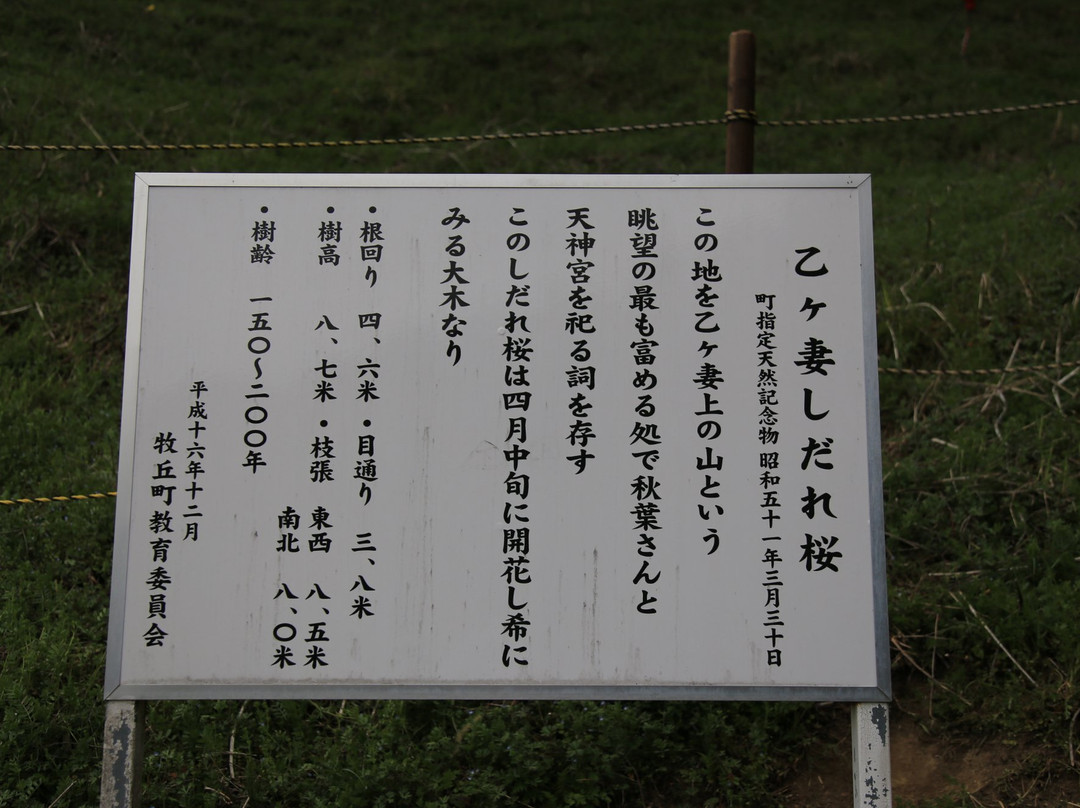 乙ヶ妻しだれ桜
町指定天然記念物 昭和五十一年三月三十日
この地を乙ヶ妻上の山という
眺望の最も富める処で秋葉さんと
天神宮を祀る詞を存す
このしだれ桜は四月中旬に開花し希に
みる大木なり
・根回り 四、六米 ・目通り 三、八米
・樹高 八、七米 ・枝張 東西 八、五米
南北 八、〇米
・樹齢 一五〇〜二〇〇年
平成十六年十二月
牧丘町教育委員会